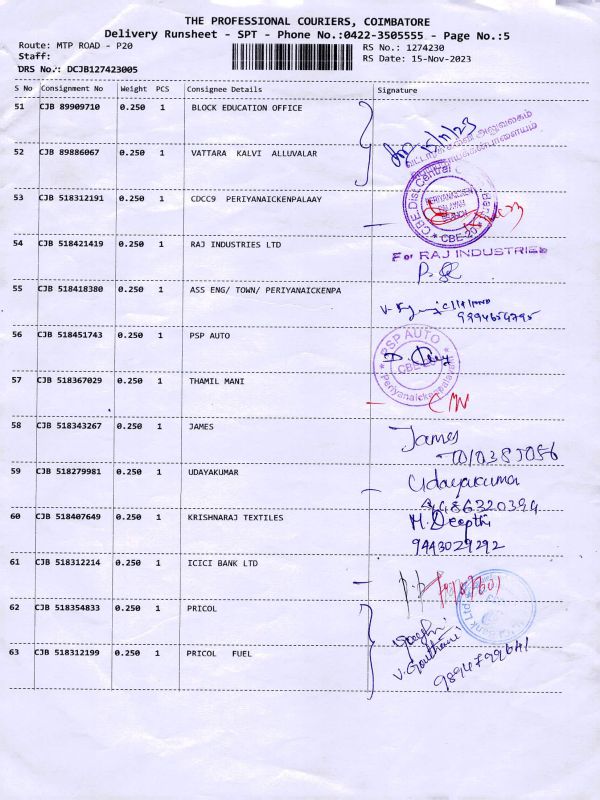 THE PROFESSIONAL COURIERS, COIMBATORE
Delivery Runsheet - SPT - Phone No.:0422-3505555 - Page No.:5
Route: MTP ROAD - P20 RS No.: 1274230
Staff: RS Date: 15-Nov-2023
DRS No.: DCJB127423005
S No Consignment No Weight PCS Consignee Details Signature
51 CJB 89909710 0.250 1 BLOCK EDUCATION OFFICE
15/11/23
52 CJB 89886067 0.250 1 VATTARA KALVI ALLUVALAR
53 CJB 518312191 0.250 1 CDCC9 PERIYANAICKENPALAAY
CBE.Dist.Central
PERIYANAICKEN
PALAYAM
BRANCH
CBE-20
54 CJB 518421419 0.250 1 RAJ INDUSTRIES LTD
For RAJ INDUSTRIES
55 CJB 518418380 0.250 1 ASS ENG/ TOWN/ PERIYANAICKENPA
56 CJB 518451743 0.250 1 PSP AUTO
PSP AUTO
CBE-20
Periyanaickenpalayam
57 CJB 518367029 0.250 1 THAMIL MANI
58 CJB 518343267 0.250 1 JAMES
James
59 CJB 518279981 0.250 1 UDAYAKUMAR
Udayakumar
9486320394
60 CJB 518407649 0.250 1 KRISHNARAJ TEXTILES
M. Deepthi
9443029292
61 CJB 518312214 0.250 1 ICICI BANK LTD
62 CJB 518354833 0.250 1 PRICOL
63 CJB 518312199 0.250 1 PRICOL FUEL
V. Gouthami
9894799641